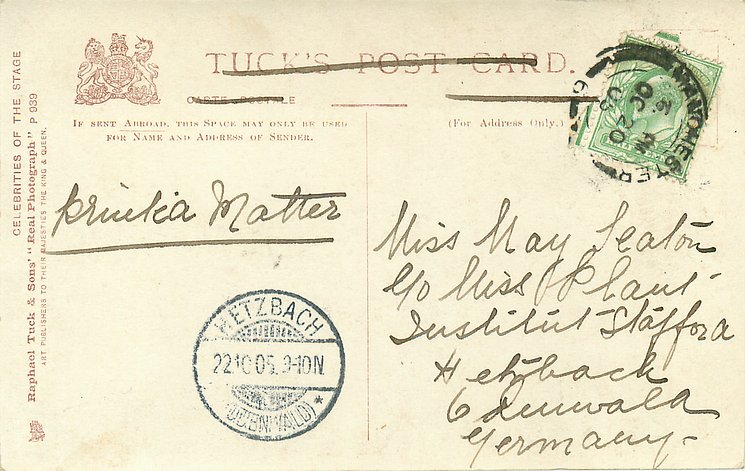 TUCK'S POST CARD.
CARTE POSTALE
IF SENT ABROAD, THIS SPACE MAY ONLY BE USED
FOR NAME AND ADDRESS OF SENDER.
(For Address Only.)
CELEBRITIES OF THE STAGE
Raphael Tuck & Sons' "Real Photograph" P 939
ART PUBLISHERS TO THEIR MAJESTIES THE KING & QUEEN.
MANCHESTER
OC 20
05
Printed Matter
HETZBACH
22.10.05. 9-10N
(ODENWALD) *
Miss May Seaton
c/o Miss Plant
Institut Stafford
Hetzbach
Odenwald
Germany-